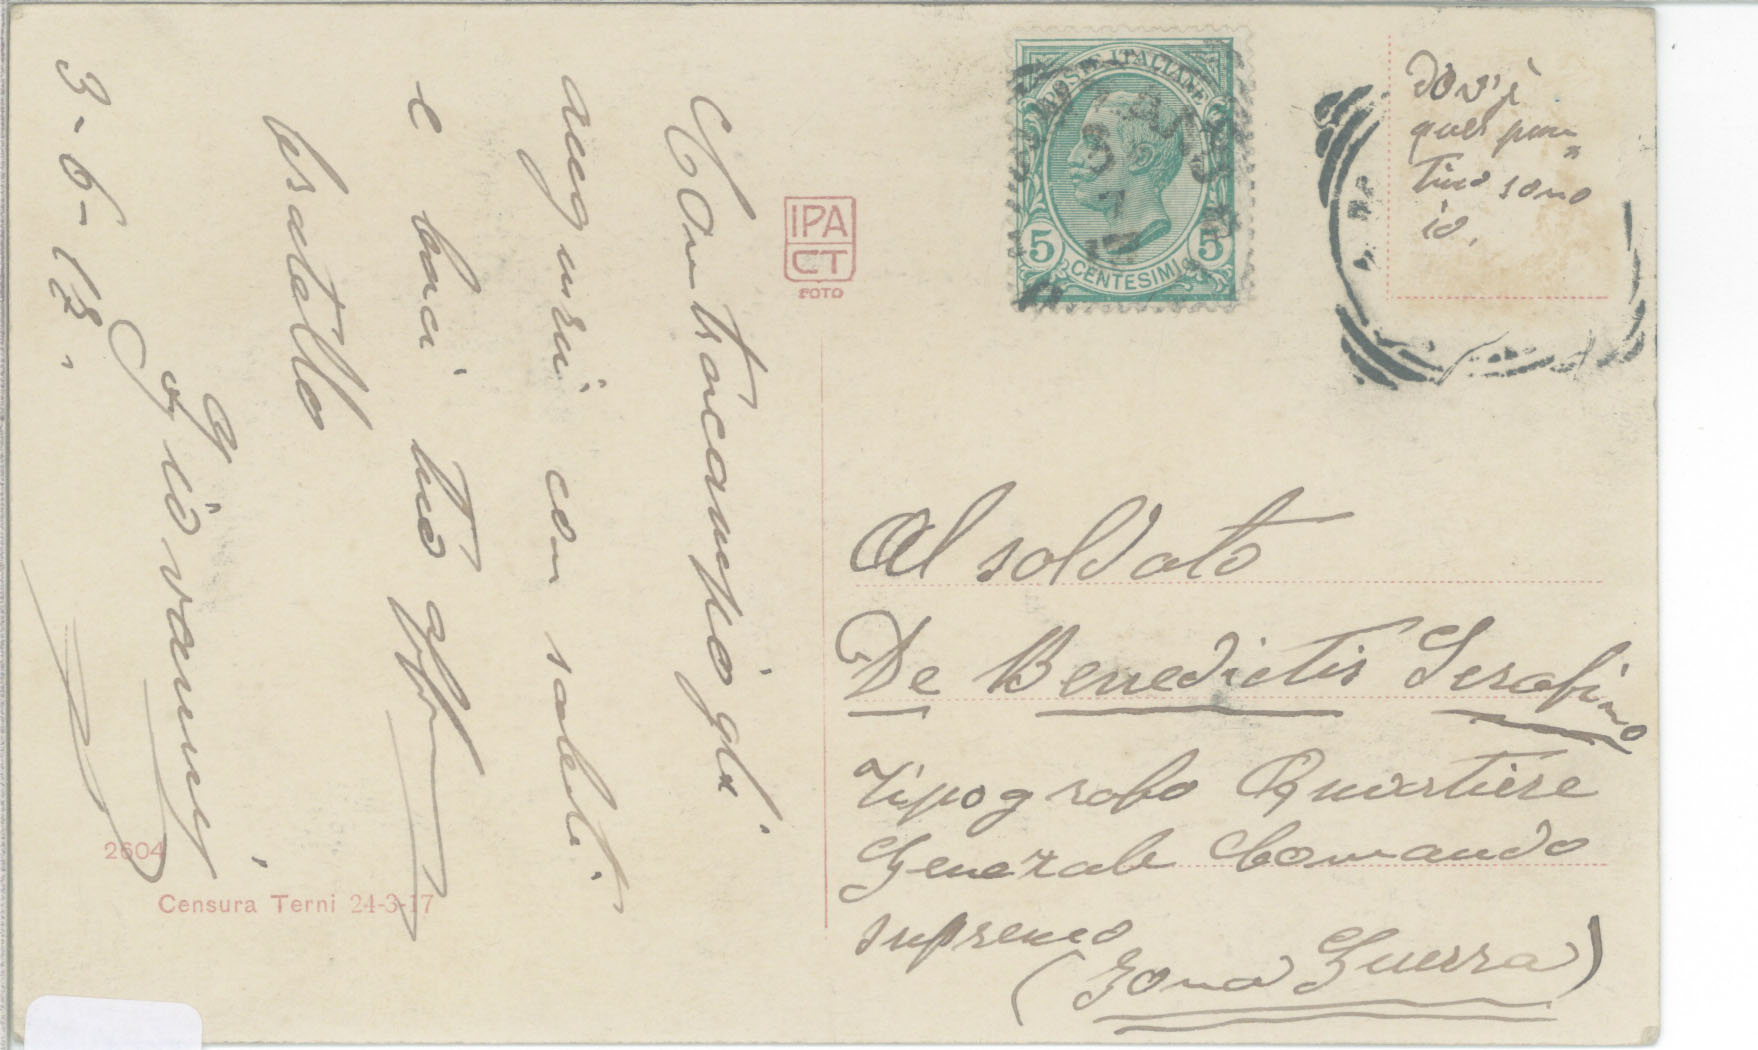 Contraccampiogli
auguri con saluti
e baci tuo aff
fratello
Giovanni
3-6-17.
IPA
CT
FOTO
POSTE ITALIANE
5 CENTESIMI 5
dov'è
quel pun
tino sono
io.
Al soldato
De Benedictis Serafino
Tipografo Quartiere
Generale Comando
supremo
(Zona Guerra)
2604
Censura Terni 24-3-17